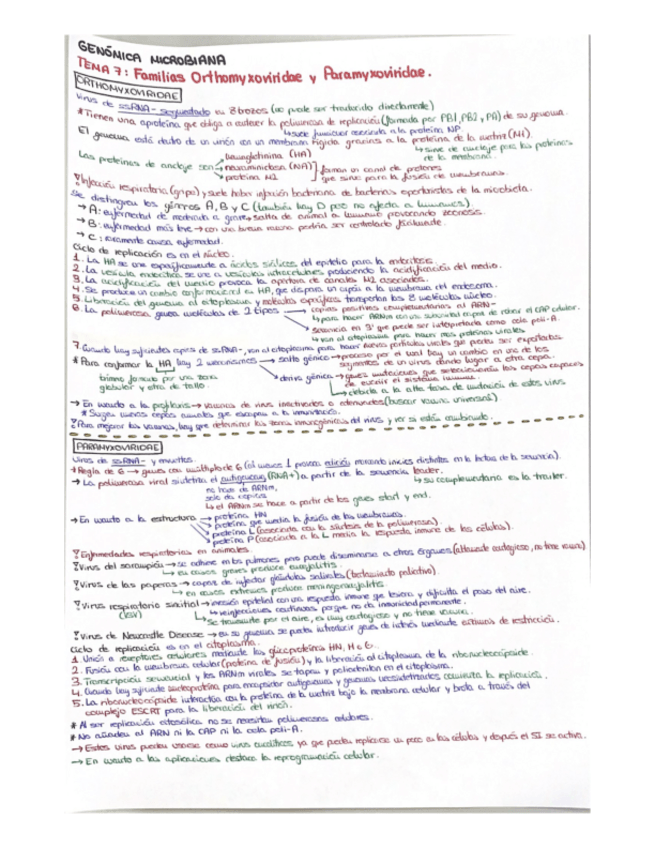 GENÓMICA MICROBIANA
TEMA 7: Familias Orthomyxoviridae y Paramyxoviridae.
ORTHOMYXOVIRIDAE
Virus de ssRNA- segmentado en 8 trozos (no puede ser traducido directamente)
* Tienen una proteína que obliga a contener la polimerasa de replicación (formada por PB1, PB2, PA) de su genoma.
↳ suele funcionar asociada a la proteína NP.
El genoma está dentro de un virión con una membrana rígida gracias a la proteína de la matriz (M1).
↳ sirve de anclaje para las proteínas de la membrana.
Las proteínas de anclaje son → hemaglutinina (HA)
→ neuraminidasa (NA)
→ proteína M2
forman un canal de protones que sirve para la fusión de membranas.
Infección respiratoria (gripe) y suele haber infección bacteriana de bacterias oportunistas de la microbiota.
Se distinguen los géneros A, B y C (también hay D pero no afecta a humanos).
→ A: enfermedad de moderada a grave → salta de animal a humano provocando zoonosis.
→ B: enfermedad más leve → con una buena vacuna podría ser controlado fácilmente.
→ C: raramente causa enfermedad.
Ciclo de replicación es en el núcleo.
1. La HA se une específicamente a ácidos siálicos del epitelio para la endocitosis.
2. La vesícula endocítica se une a vesículas intracelulares produciendo la acidificación del medio.
3. La acidificación del medio provoca la apertura de canales M2 asociados.
4. Se produce un cambio conformacional en HA, que dispara un cupón a la membrana del endosoma.
5. Liberación del genoma al citoplasma y moléculas específicas transportan las 8 moléculas núcleo.
6. La polimerasa genera moléculas de 2 tipos → copias positivas complementarias al ARN-
↳ para hacer ARNm con su subunidad capaz de robar el CAP celular.
secuencia en 3' que puede ser interpretada como cola poli-A.
↳ van al citoplasma para hacer más proteínas virales.
7. Cuando hay suficientes copias de ssRNA-, van al citoplasma para hacer nuevas partículas virales que pueden ser exportadas.
* Para conformar la HA hay 2 mecanismos → salto génico → proceso por el cual hay un cambio en uno de los segmentos de un virus dando lugar a otra cepa.
trímero formado por una zona globular y otra de tallo.
→ deriva génica → genes mutaciones que seleccionarían las cepas capaces de evadir el sistema inmune.
↳ debido a la alta tasa de mutación de estos virus
→ En cuanto a la profilaxis → vacunas de virus inactivados o atenuados (buscar vacuna universal)
* Surgen nuevas cepas anuales que escapan a la inmunización.
Para mejorar las vacunas, hay que determinar las zonas inmunogénicas del virus y ver si están cambiando.
PARAMYXOVIRIDAE
Virus de ssRNA- y envueltos.
* Regla de 6 → genes con múltiplo de 6 (al menos 1 provoca edición entrando inicios distintos en la lectura de la secuencia).
→ La polimerasa viral sintetiza el antigenoma (RNA+) a partir de la secuencia leader.
↳ su complementaria es la trailer.
no hace de ARNm, solo de copias
↳ el ARNm se hace a partir de los genes start y end.
→ En cuanto a la estructura → proteína HN
→ proteína que media la fusión de las membranas.
→ proteína L (asociada con la síntesis de la polimerasa).
→ proteína P (asociada a la L media la respuesta inmune de las células).
Enfermedades respiratorias en animales.
Virus del sarampión → se adhiere en los pulmones pero puede diseminarse a otros órganos (altamente contagioso, no tiene vacuna)
↳ en casos graves produce encefalitis.
Virus de las paperas → capaz de infectar glándulas salivales (tratamiento paliativo).
↳ en casos extremos produce meningoencefalitis.
Virus respiratorio sincitial → invasión epitelial con una respuesta inmune que lesiona y dificulta el paso del aire.
(RSV)
↳ reinfecciones continuas porque no da inmunidad permanente.
↳ Se transmite por el aire, es muy contagioso y no tiene vacuna.
Virus de Newcastle Disease → en su genoma se pueden introducir genes de interés mediante enzimas de restricción.
Ciclo de replicación es en el citoplasma.
1. Unión a receptores celulares mediante las glicoproteínas HN, H o G.
2. Fusión con la membrana celular (proteína de fusión) y la liberación al citoplasma de la ribonucleocápside.
3. Transcripción secuencial y los ARNm virales se tapan y poliadenilan en el citoplasma.
4. Cuando hay suficiente nucleoproteína para encapsidar antigenomas y genomas recién sintetizados comienza la replicación.
5. La ribonucleocápside interactúa con la proteína de la matriz bajo la membrana celular y brota a través del complejo ESCRT para la liberación del virión.
* Al ser replicación citosólica no se necesitan polimerasas celulares.
* No añaden al ARN ni la CAP ni la cola poli-A.
→ Estos virus pueden usarse como virus oncolíticos ya que pueden replicarse un poco en las células y después el SI se activa.
→ En cuanto a las aplicaciones destaca la reprogramación celular.